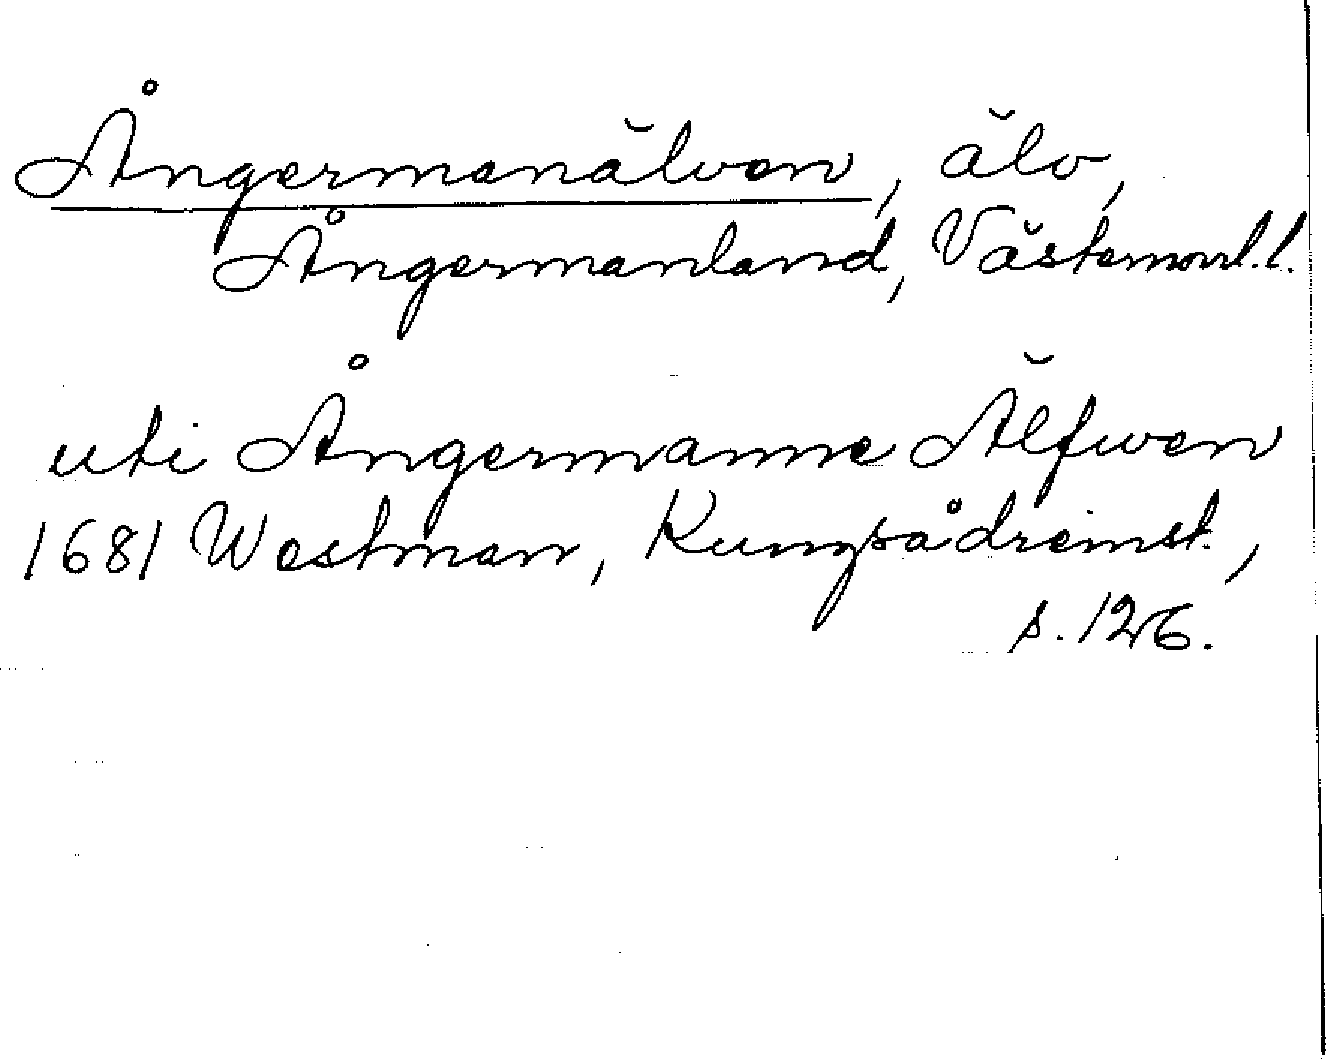 Ångermanälven, älv,
Ångermanland, Västernorrl. l.
uti Ångermanne Älfwen
1681 Westman, Kungsådreinst.,
s. 126.